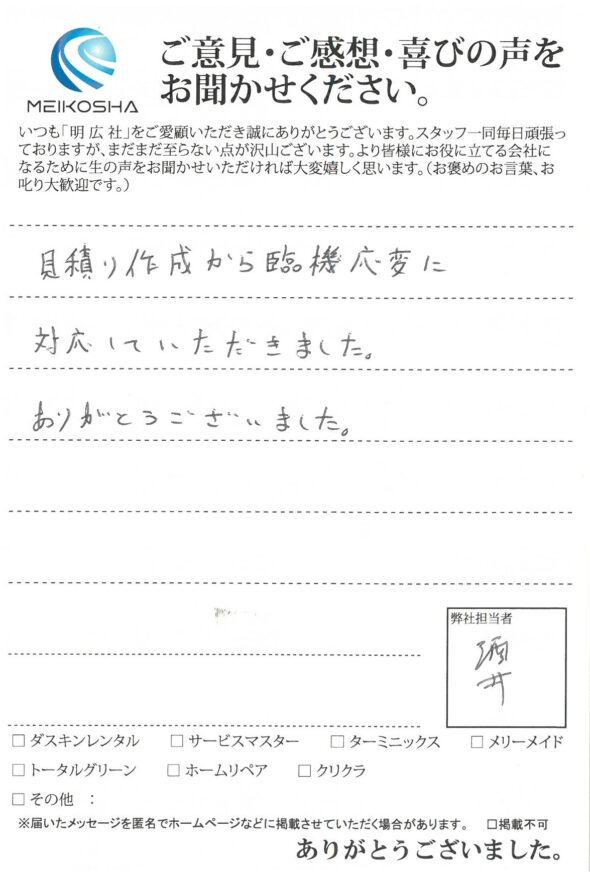 MEIKOSHA
ご意見・ご感想・喜びの声を
お聞かせください。
いつも「明広社」をご愛顧いただき誠にありがとうございます。スタッフ一同毎日頑張っ
ておりますが、まだまだ至らない点が沢山ございます。より皆様にお役に立てる会社に
なるために生の声をお聞かせいただければ大変嬉しく思います。（お褒めのお言葉、お
叱り大歓迎です。）
見積り作成から臨機応変に
対応していただきました。
ありがとうございました。
弊社担当者
酒井
□ ダスキンレンタル □ サービスマスター □ ターミニックス □ メリーメイド
□ トータルグリーン □ ホームリペア □ クリクラ
□ その他 ：
※届いたメッセージを匿名でホームページなどに掲載させていただく場合があります。 □掲載不可
ありがとうございました。